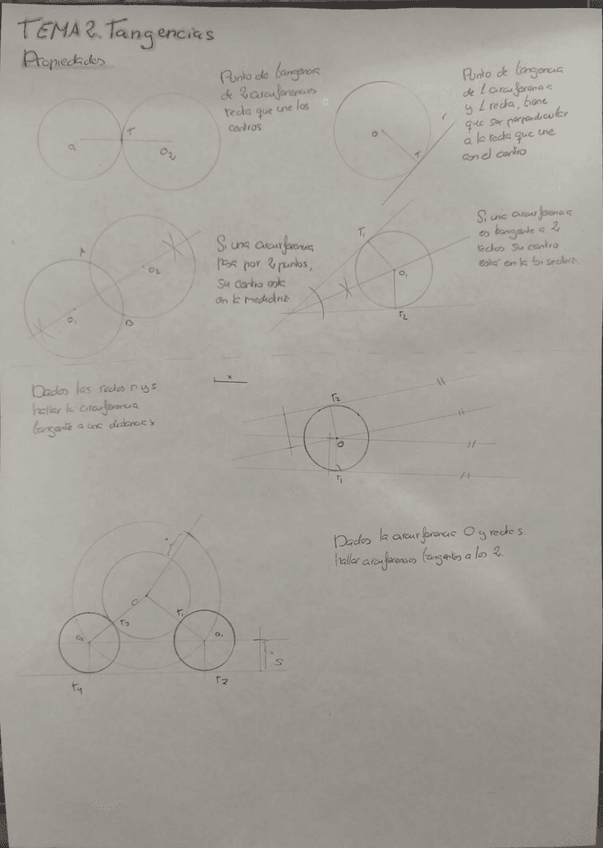 TEMA 2. Tangencias
Propiedades
Punto de tangencia
de 2 circunferencias
recta que une los
centros.
T
O2
Punto de tangencia
de 1 circunferencia
y 1 recta, tiene
que ser perpendicular
a la recta que une
con el centro
O
T
r
Si una circunferencia
pasa por 2 puntos,
su centro está
en la mediatriz
A
O2
O1
B
Si una circunferencia
es tangente a 2
rectas su centro
está en la bisectriz.
T1
O1
T2
Dados las rectas r y s
hallar la circunferencia
tangente a una distancia x
x
T2
O
T1
Dados la circunferencia O y recta s
hallar circunferencias tangentes a los 2.
O
T3
T1
O1
S
T4
T2